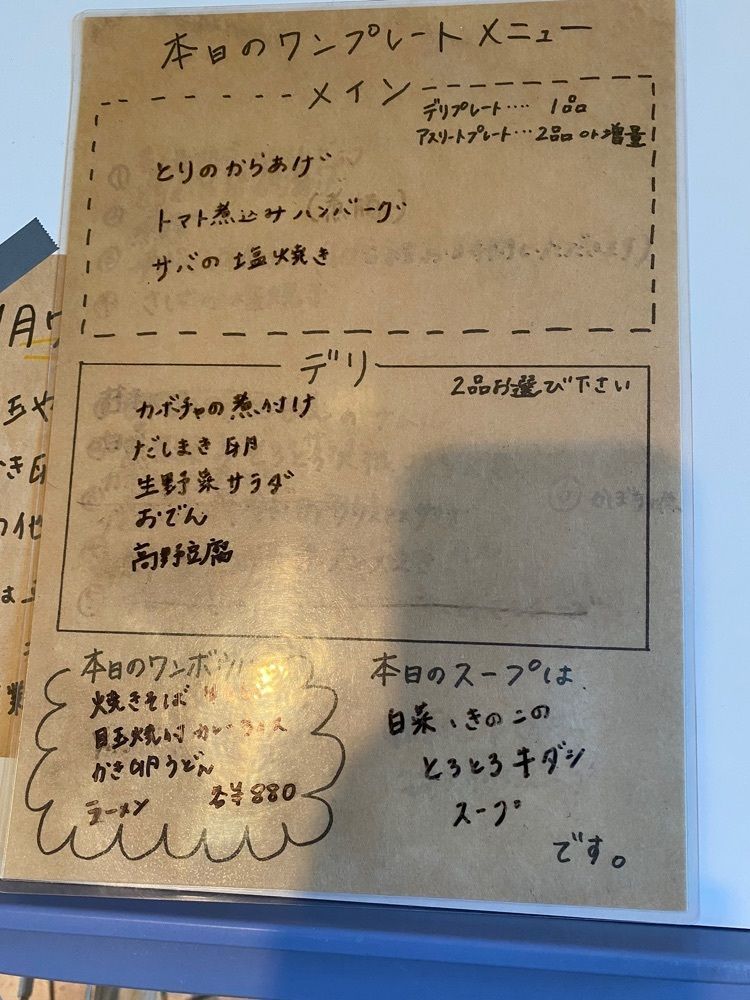 本日のワンプレートメニュー
メイン
デリプレート‥‥ 1品
アスリートプレート‥‥2品 or 増量
とりのからあげ
トマト煮込みハンバーグ
サバの塩焼き
デリ
2品お選び下さい
カボチャの煮付け
だしまき卵
生野菜サラダ
おでん
高野豆腐
本日のワンボウル
焼きそば
目玉焼付カレーライス
かき卵うどん
ラーメン 各¥880
本日のスープは
白菜、きのこの
とろとろ牛ダシ
スープ
です。